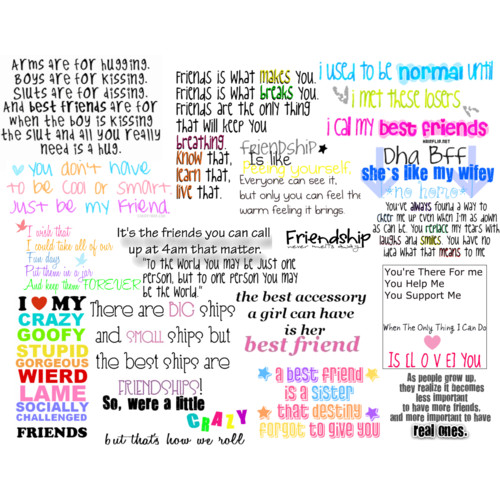 Arms are for hugging.
Boys are for kissing.
Sluts are for dissing.
And best friends are for
when the boy is kissing
the slut and all you really
need is a hug.
Friends is what makes you.
Friends is what breaks you.
Friends are the only thing
that will keep you
breathing.
Know that,
learn that,
live that.
i used to be normal until
i met these losers
i call my best friends
you don't have
to be cool or smart.
Just be my friend.
FRiENDSHiP
Is like
Peeing yourself.
Everyone can see it,
but only you can feel the
warm feeling it brings.
Dha BFF
she's like my wifey
no homo
You've always found a way to
cheer me up even when I'm as down
as can be. You replace my tears with
laughs and smiles. You have no
idea what that means to me
I wish that
I could take all of our
Fun days
Put them in a jar
And keep them FOREVER
It's the friends you can call
up at 4am that matter.
Friendship
"To the world you may be just one
person, but to one person you may
be the world."
You're There For me
You Help Me
You Support Me
When The Only Thing I Can Do
Is [L O V E] You
I ♥ MY
CRAZY
GOOFY
STUPID
GORGEOUS
WIERD
LAME
SOCIALLY
CHALLENGED
FRIENDS
There are BIG ships
and SMALL ships but
the best ships are
FRIENDSHIPS!
the best accessory
a girl can have
is her
best friend
So, were a little
CRAZY
but that's how we roll
a best friend
is a sister
that destiny
forgot to give you
As people grow up,
they realize it becomes
less important
to have more friends,
and more important to have
real ones.